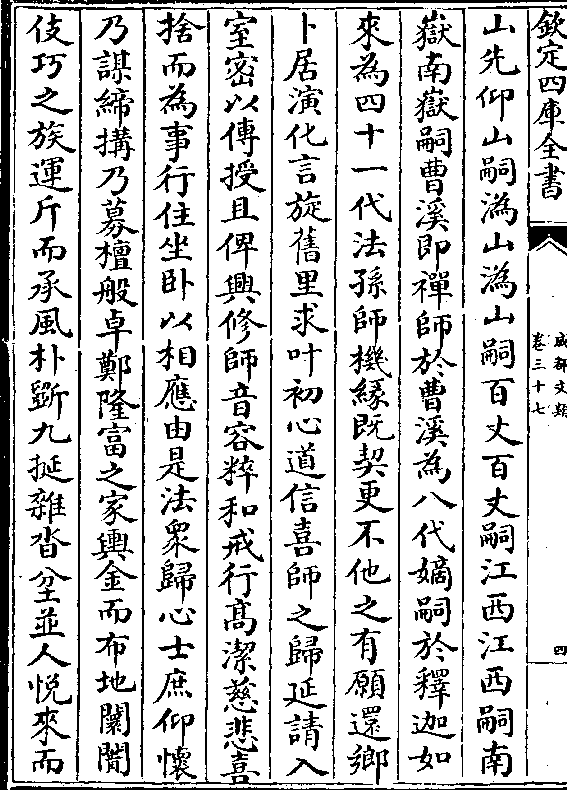 欽定四庫全書
成都文類
卷三十七
四
山先仰山嗣溈山溈山嗣百丈百丈嗣江西江西嗣南
嶽南嶽嗣曹溪即禪師於曹溪為八代嫡嗣於釋迦如
來為四十一代法孫師機緣既契更不他之有願還鄉
卜居演化言旋舊里求叶初心道信喜師之歸延請入
室密以傳授且俾興修師音容粹和戒行髙潔慈悲喜
捨而為事行住坐卧以相應由是法衆歸心士庶仰懷
乃謀締搆乃募檀般卓鄭隆富之家輿金而布地闤闠
伎巧之族運斤而承風朴斵九挻雜沓坌並人悅來而